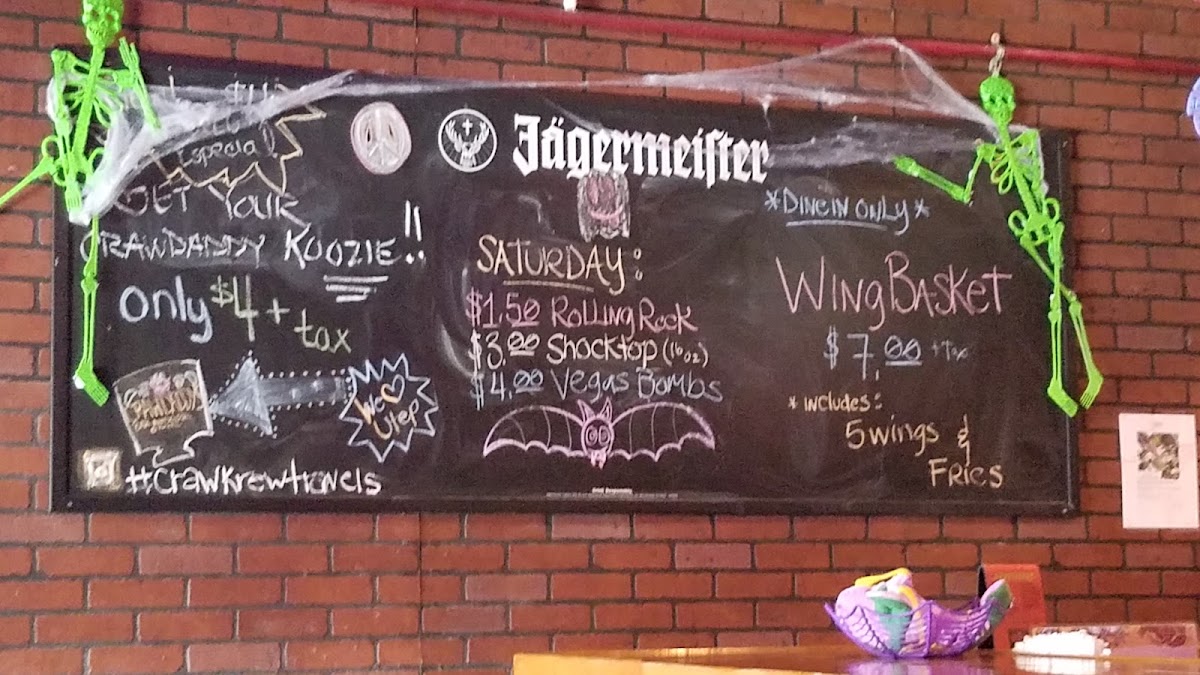 Special
GET YOUR
CRAWDADDY KOOZIE!!
only $4 + tax
We ♡ Ulep
#crawkrewtravels
Jägermeister
SATURDAY:
$1.50 Rolling Rock
$3.00 Shocktop (16oz)
$4.00 Vegas Bombs
*DINE IN ONLY*
WING BASKET
$7.00 + Tax
* INCLUDES:
5 wings &
FRIES